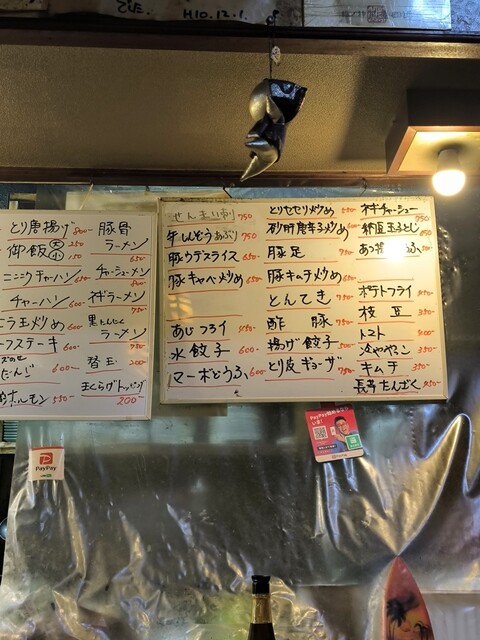 H10.12.1.
とり唐揚げ 800
御飯 大 250 小 150
ニンニクチャーハン 650
チャーハン 600
ニラ玉炒め 600
ステーキ 600
ホルモン 550
豚骨ラーメン 650
チャーシューメン 800
ネギラーメン 750
黒にんにくラーメン
替玉 200
玉くらげトッピング 200
せんまい刺 750
牛しんぞうあぶり 750
豚ウデスライス 650
豚キャベ炒め 650
あじフライ
水餃子 600
マーボどうふ 600
とりセセリ炒め 650
砂肝唐辛子炒め 600
豚足 750
豚キムチ炒め 650
とんてき 750
酢豚 750
揚げ餃子 500
とり皮ギョーザ 750
ネギチャーシュー 750
ポテトフライ
枝豆 350
トマト 400
冷ややっこ 350
キムチ 350
長芋たんざく 450
PayPay